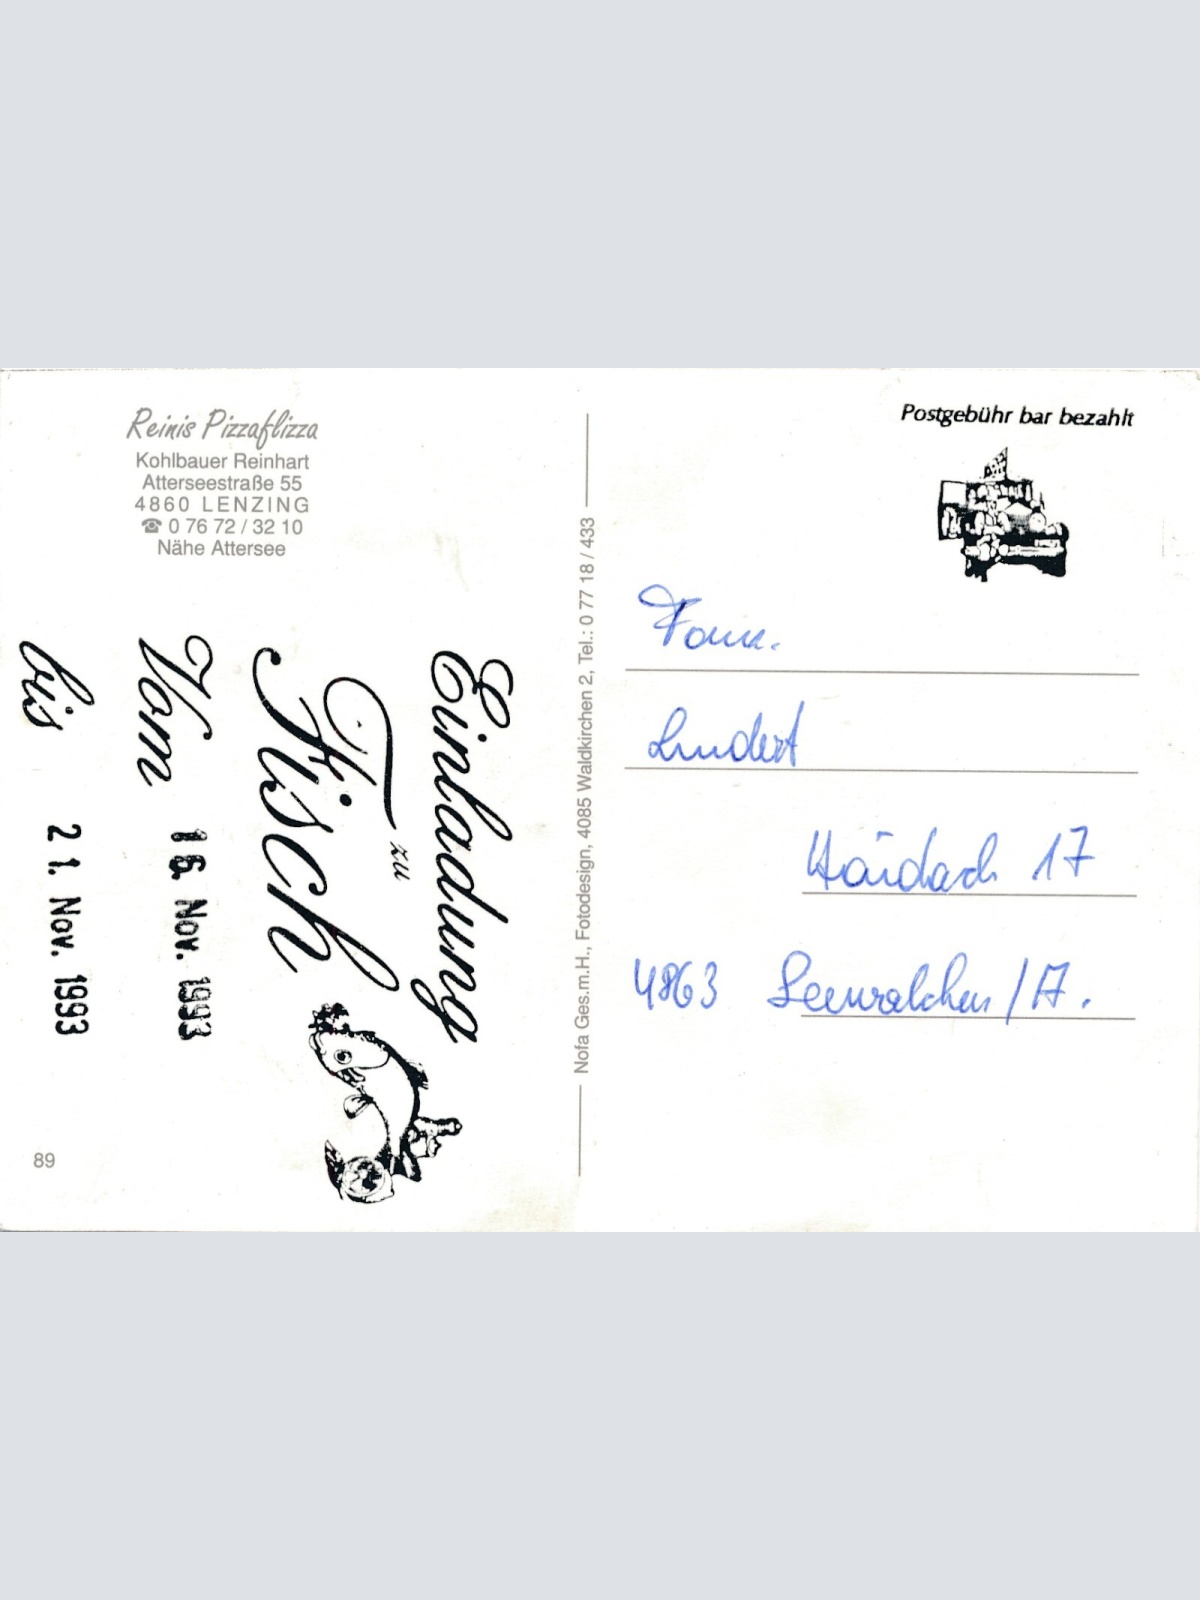 Reinis Pizzaflizza
Kohlbauer Reinhart
Atterseestraße 55
4860 LENZING
☎ 0 76 72 / 32 10
Nähe Attersee
Einladung
zu
Fisch
Vom 16. Nov. 1993
bis 21. Nov. 1993
89
Nofa Ges.m.H., Fotodesign, 4085 Waldkirchen 2, Tel.: 0 77 18 / 433
Postgebühr bar bezahlt
Fam.
Lindert
Haidach 17
4863 Seewalchen / A.